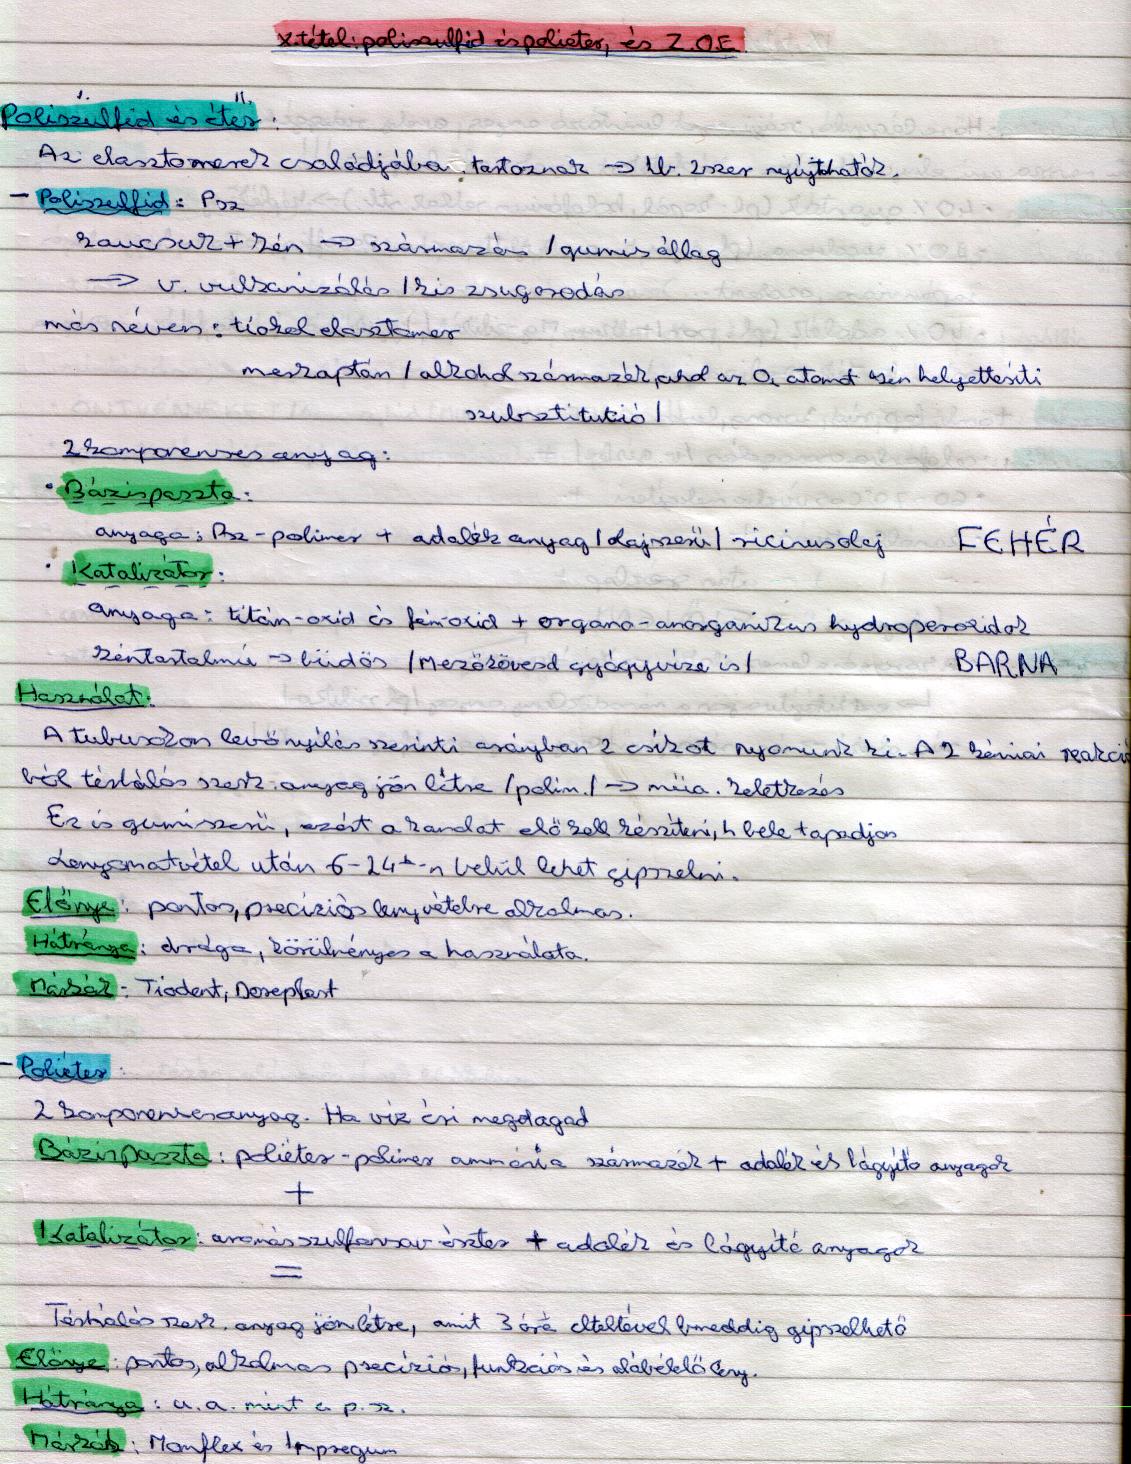 X. tétel: poliszulfid és poliéter, és Z.O.E.
I. II.
Poliszulfid és éter:
Az elasztomerek családjába tartoznak → kb. 2szer nyújthatók.
- Poliszulfid: Psz
kaucsuk + kén → származás / gumis állag
→ v. vulkanizálás / kis zsugorodás
más néven: tiokol elasztomer
merkaptán / alkohol származék, ahol az O, atomot kén helyettesíti
szubsztitució /
2 komponenses anyag:
• Bázispaszta:
anyaga: Psz - polimer + adalék anyag / olajszerű / ricinusolaj FEHÉR
• Katalizátor:
anyaga: titán-oxid és fém-oxid + organo-anorganikus hydroperoxidok
kéntartalmú → büdös / Mezőkövesd gyógyvize is / BARNA
Használat:
A tubusokon levő nyílás szerinti arányban 2 csíkot nyomunk ki. A 2 kémiai reakció
ból térhálós szerk. anyag jön létre / polim. / → műa. keletkezés
Ez is gumiszerű, ezért a kanalat elő kell készíteni, h bele tapadjon
Lenyomatvétel után 6-24h-n belül lehet gipszelni.
Előnye: pontos, precíziós lenyvételre alkalmas.
Hátránya: drága, körülményes a használata.
Márkák: Tiodent, Doseplast
- Poliéter:
2 komponenses anyag. Ha víz éri megdagad
Bázispaszta: poliéter - polimer ammónia származék + adalék és lágyító anyagok
+
Katalizátor: aromás szulfonsav észter + adalék és lágyító anyagok
=
Térhálós szerk. anyag jön létre, amit 3 óra elteltével bmeddig gipszelhető
Előnye: pontos, alkalmas precíziós, funkciós és alábélelő leny.
Hátránya: u.a. mint a p.sz.
Márkák: Monflex és Impregum